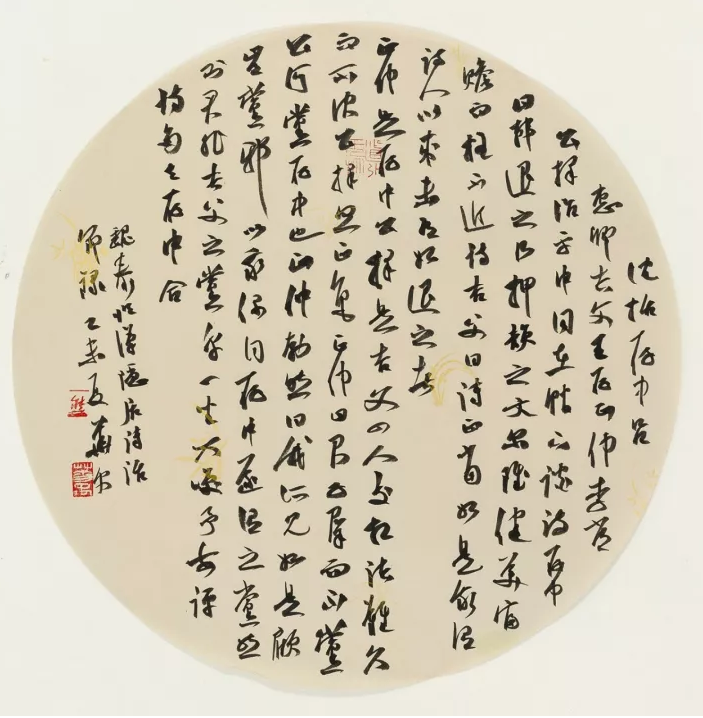 沈括存中呂
惠卿吉父王存正仲李常
公擇治平中同在館下談詩存中
曰韓退之乃押韻之文爾雖健美富
贍而格不近詩吉父曰詩正當如是余謂
詩人以來未有如退之者
正仲是存中公擇是吉父四人交相詰難久
而不決公擇忽正色正仲曰君子群而不黨
公何黨存中也正仲勃然曰我所見如是顧
豈黨邪以我偶同存中遂謂之黨然
則君非吉父之黨乎一坐大笑予每評
詩多與存中合
魏泰臨漢隱居詩話
節錄乙未夏